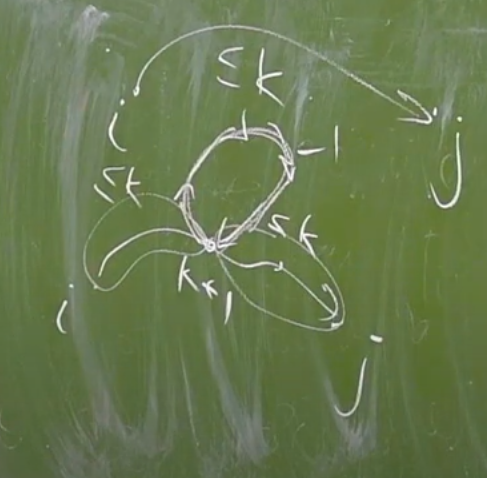 ≤ k
i
j
-1
≤ k
≤ k
k+1
i
j